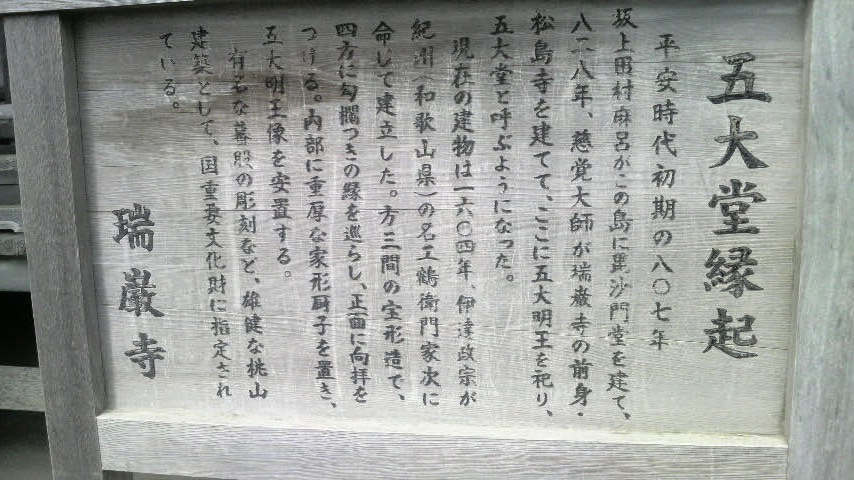 五大堂縁起
平安時代初期の八〇七年
坂上田村麻呂がこの島に毘沙門堂を建て、
八二八年、慈覚大師が瑞巌寺の前身・
松島寺を建てて、ここに五大明王を祀り、
五大堂と呼ぶようになった。
現在の建物は一六〇四年、伊達政宗が
紀州（和歌山県）の名工鶴衛門家次に
命じて建立した。方三間の宝形造で、
四方に勾欄つきの縁を巡らし、正面に向拝を
つける。内部に重厚な家形厨子を置き、
五大明王像を安置する。
有名な蟇股の彫刻など、雄健な桃山
建築として、国重要文化財に指定され
ている。
瑞巌寺